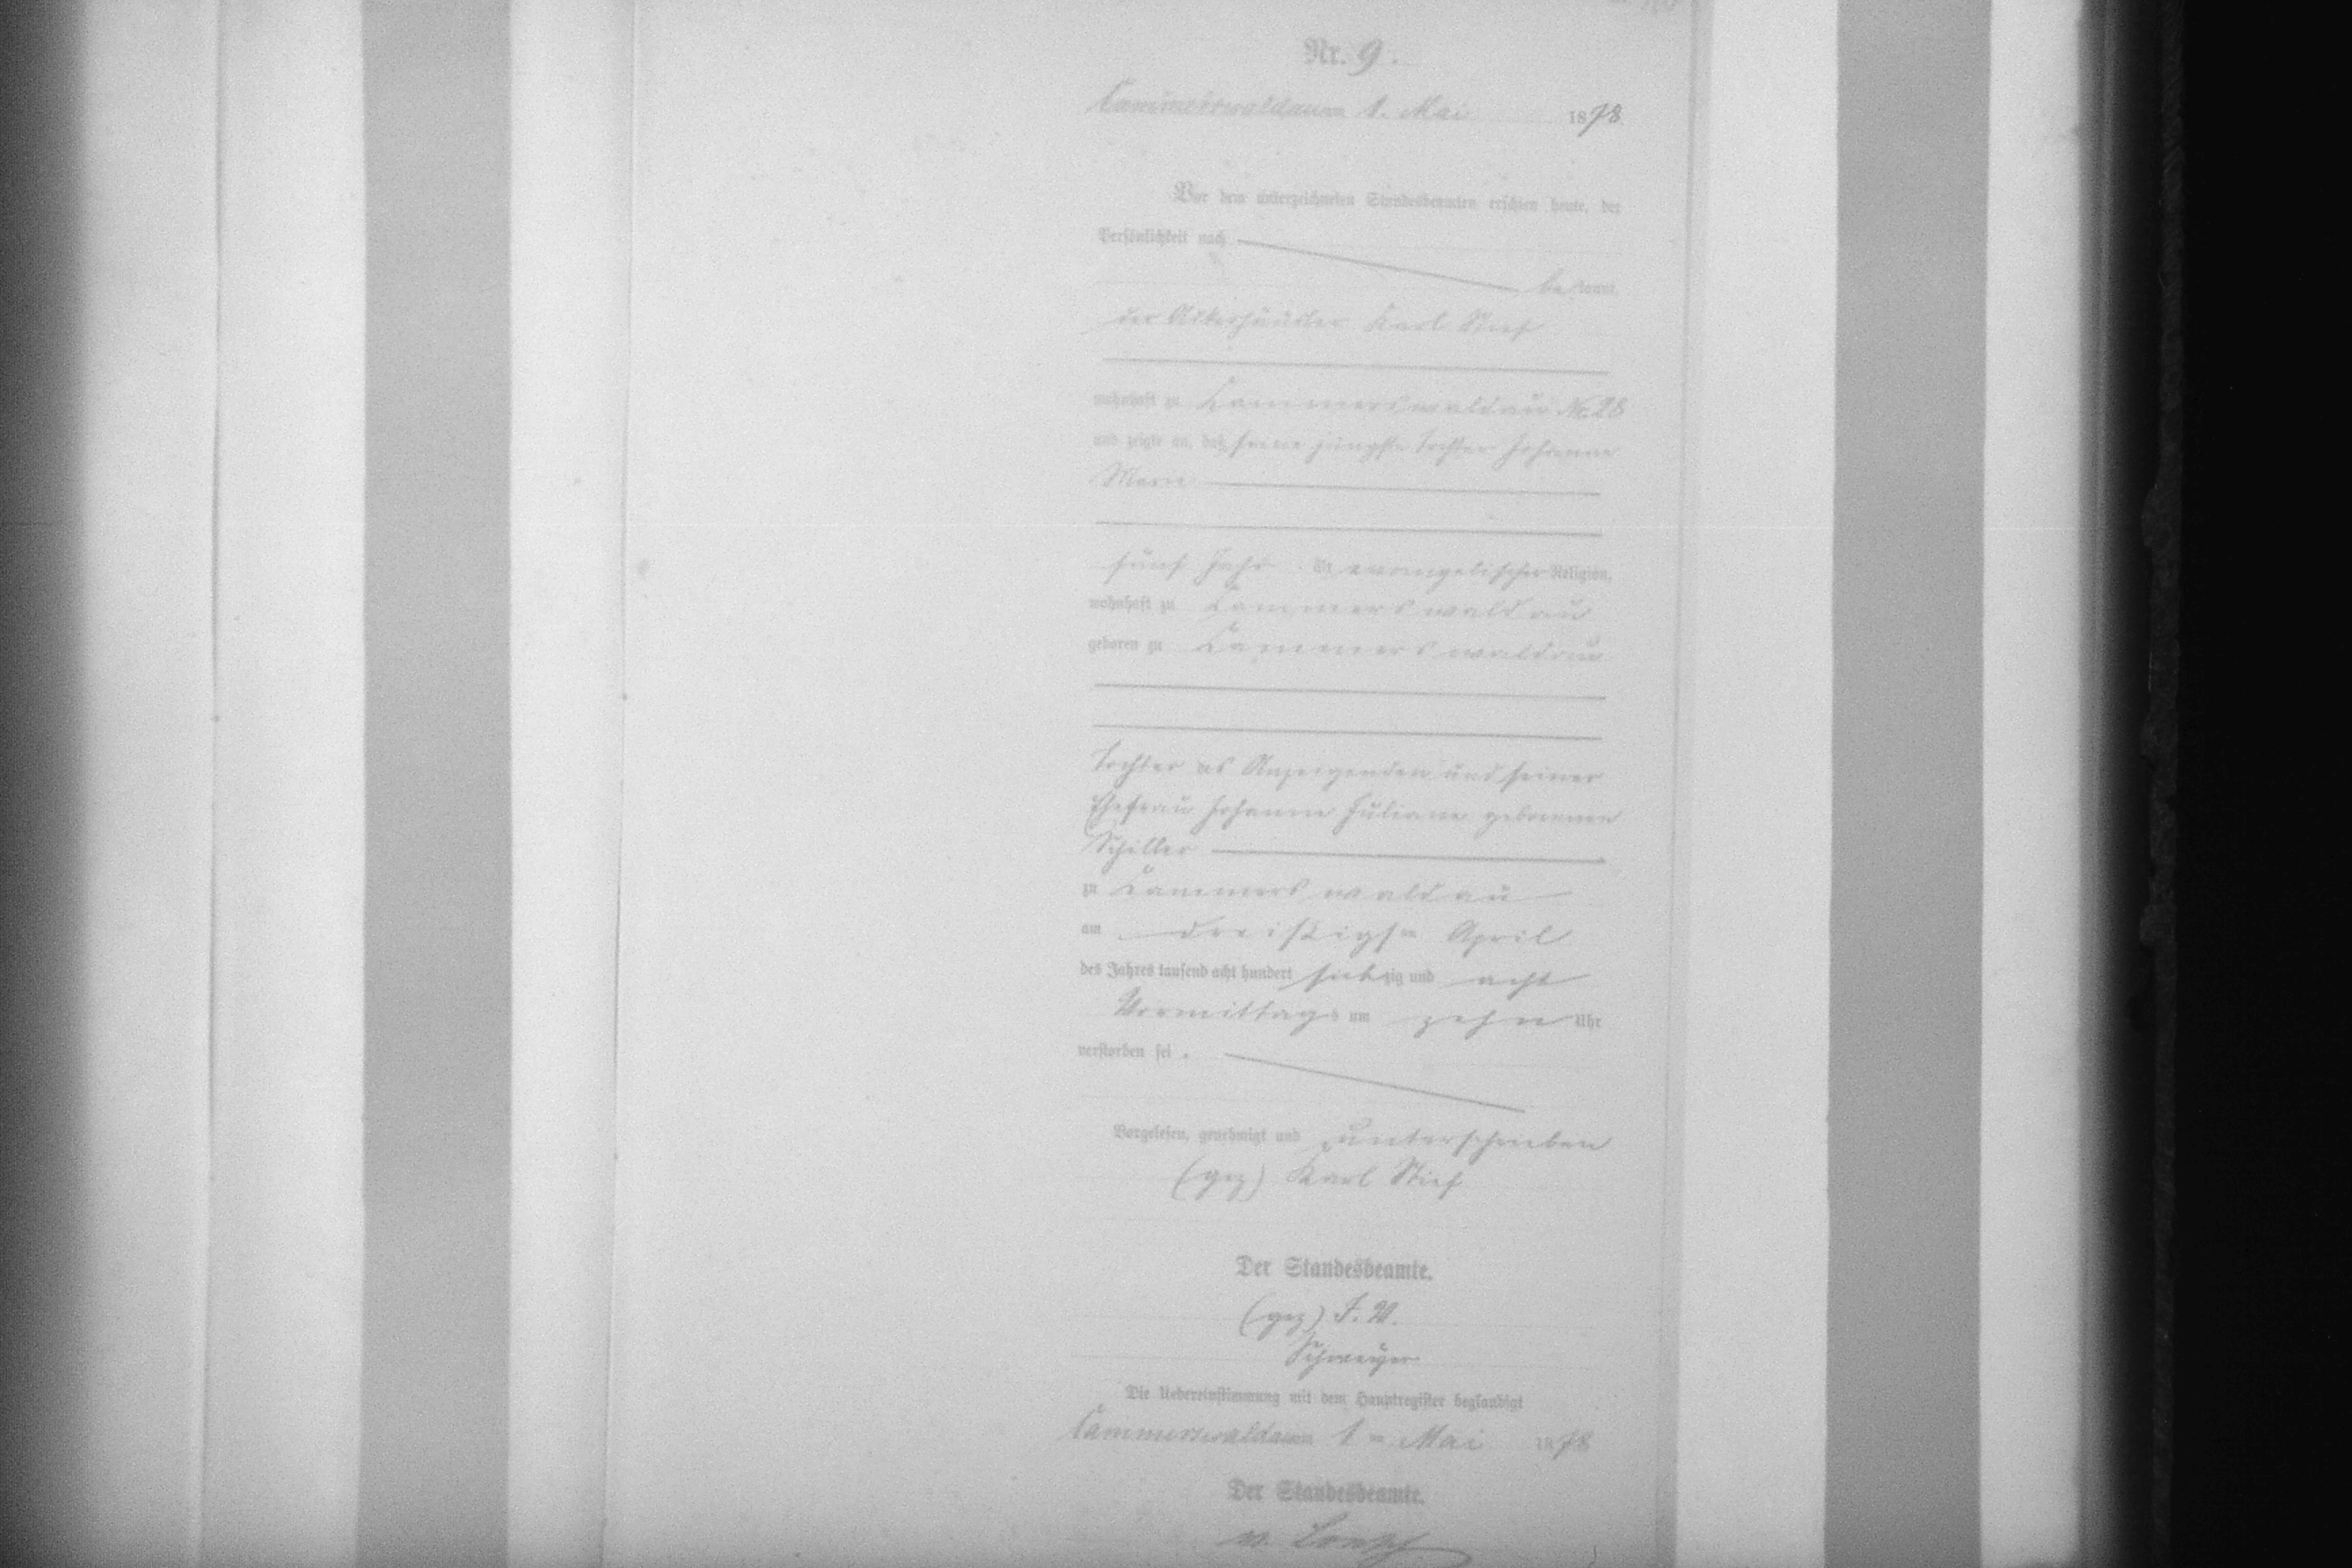 Nr. 9.
Cammerswaldau am 1. Mai 1878
Vor dem unterzeichneten Standesbeamten erschien heute, der
Persönlichkeit nach
bekannt,
der Ackerhäusler Karl Stief
wohnhaft zu Cammerswaldau No. 28
und zeigte an, daß seine jüngste Tochter Johanne
Marie
fünf Jahr alt, evangelischer Religion,
wohnhaft zu Cammerswaldau
geboren zu Cammerswaldau
Tochter des Anzeigenden und seiner
Ehefrau Johanne Juliane geborenen
Schiller
zu Cammerswaldau
am dreißigsten April
des Jahres tausend acht hundert siebzig und acht
Vormittags um zehn Uhr
verstorben sei.
Vorgelesen, genehmigt und unterschrieben
(gez) Karl Stief
Der Standesbeamte.
(gez)
Die Uebereinstimmung mit dem Hauptregister beglaubigt
Cammerswaldau am 1ten Mai 1878
Der Standesbeamte.